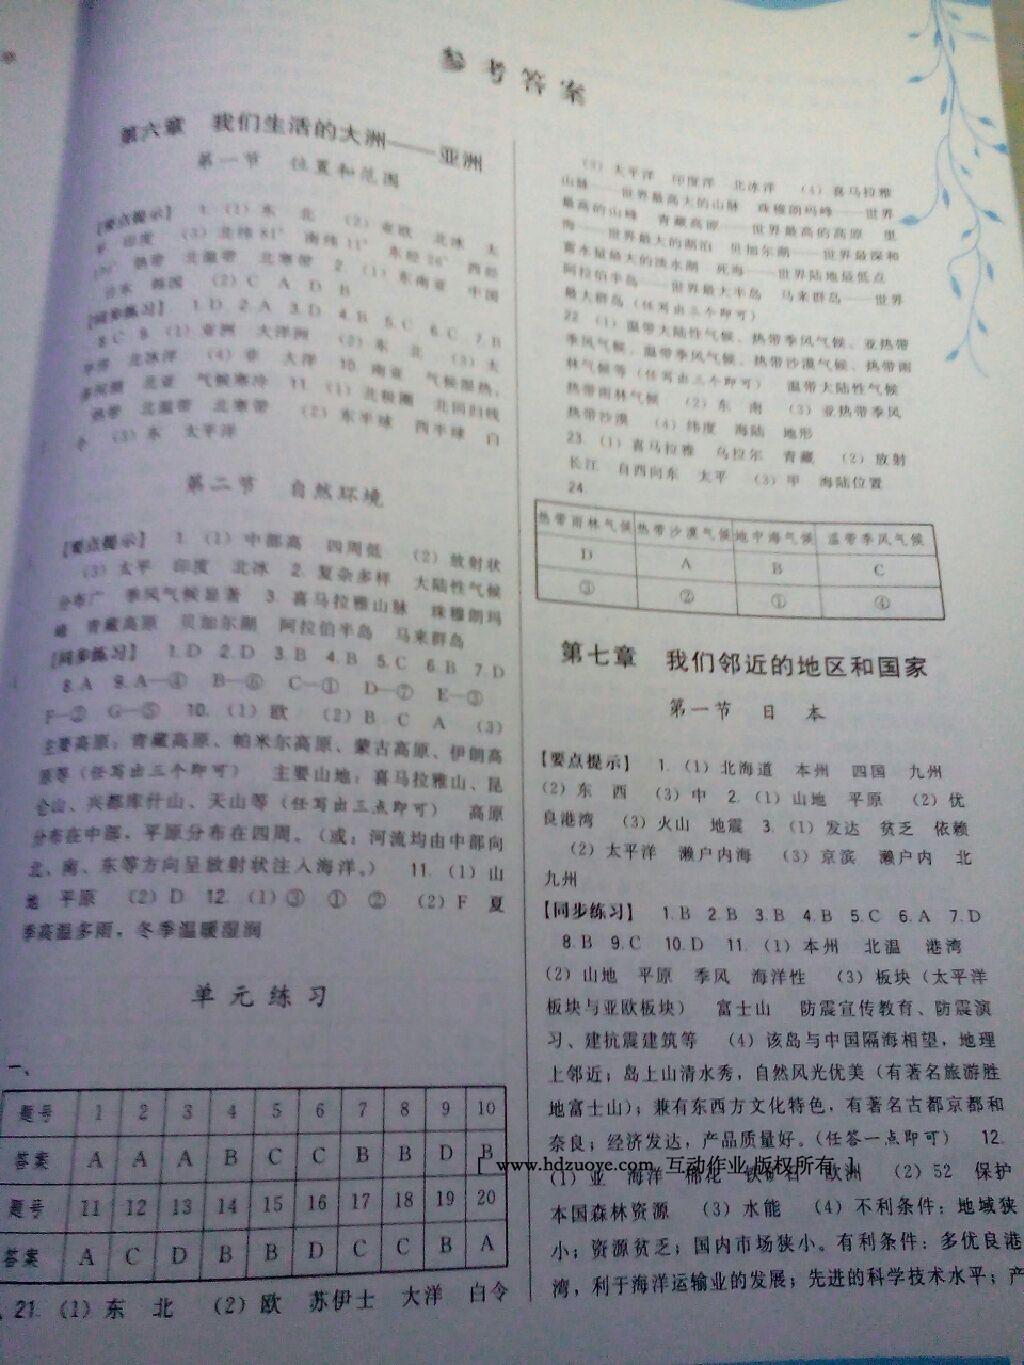 参考答案
第六章 我们生活的大洲——亚洲
第一节 位置和范围
【要点提示】 1. (1) 东 北 (2) 亚欧 北冰 太
平 印度 (3) 北纬81° 南纬11° 东经26° 西经
热带 北温带 北寒带 2. (1) 东南亚 中国
日本 韩国 (2) C A D B
【同步练习】 1. D 2. A 3. D 4. B 5. C 6. C 7. B
8. C 9. (1) 亚洲 大洋洲 (2) 东 北 (3) 太
平洋 北冰洋 (4) 非 大洋 10. 南亚 气候湿热,
北亚 气候寒冷 11. (1) 北极圈 北回归线
热带 北温带 北寒带 (2) 东半球 西半球 白
令 (3) 东 太平洋
第二节 自然环境
【要点提示】 1. (1) 中部高 四周低 (2) 放射状
(3) 太平 印度 北冰 2. 复杂多样 大陆性气候
分布广 季风气候显著 3. 喜马拉雅山脉 珠穆朗玛
峰 青藏高原 贝加尔湖 阿拉伯半岛 马来群岛
【同步练习】 1. D 2. D 3. B 4. B 5. C 6. B 7. D
8. A 9. A—④ B—⑥ C—① D—⑦ E—③
F—② G—⑤ 10. (1) 欧 (2) B C A (3)
主要高原：青藏高原、帕米尔高原、蒙古高原、伊朗高
原等(任写出三个即可) 主要山地：喜马拉雅山、昆
仑山、兴都库什山、天山等(任写出三点即可) 高原
分布在中部，平原分布在四周。(或：河流均由中部向
北、南、东等方向呈放射状注入海洋。) 11. (1) 山
地 平原 (2) D 12. (1) ③ ① ② (2) F 夏
季高温多雨，冬季温暖湿润
单元练习
一、
题号 1 2 3 4 5 6 7 8 9 10
答案 A A A B C C B B D B
题号 11 12 13 14 15 16 17 18 19 20
答案 A C D B B D C C B A
21. (1) 东 北 (2) 欧 苏伊士 大洋 白令
(3) 太平洋 印度洋 北冰洋 (4) 喜马拉雅
山脉——世界最高大的山脉 珠穆朗玛峰——世界
最高的山峰 青藏高原——世界最高的高原 里
海——世界最大的湖泊 贝加尔湖——世界最深和
蓄水量最大的淡水湖 死海——世界陆地最低点
阿拉伯半岛——世界最大半岛 马来群岛——世界
最大群岛(任写出三个即可)
22. (1) 温带大陆性气候、热带季风气候、亚热带
季风气候、温带季风气候、热带沙漠气候、热带雨
林气候等(任写出三个即可) 温带大陆性气候
热带雨林气候 (2) 东 南 (3) 亚热带季风
热带沙漠 (4) 纬度 海陆 地形
23. (1) 喜马拉雅 乌拉尔 青藏 (2) 放射
长江 自西向东 太平 (3) 甲 海陆位置
24.
热带雨林气候 热带沙漠气候 地中海气候 温带季风气候
D A B C
③ ② ① ④
第七章 我们邻近的地区和国家
第一节 日本
【要点提示】 1. (1) 北海道 本州 四国 九州
(2) 东 西 (3) 中 2. (1) 山地 平原 (2) 优
良港湾 (3) 火山 地震 3. (1) 发达 贫乏 依赖
(2) 太平洋 濑户内海 (3) 京滨 濑户内 北
九州
【同步练习】 1. B 2. B 3. B 4. B 5. C 6. A 7. D
8. B 9. C 10. D 11. (1) 本州 北温 港湾
(2) 山地 平原 季风 海洋性 (3) 板块(太平洋
板块与亚欧板块) 富士山 防震宣传教育、防震演
习、建抗震建筑等 (4) 该岛与中国隔海相望，地理
上邻近；岛上山清水秀，自然风光优美(有著名旅游胜
地富士山)；兼有东西方文化特色，有著名古都京都和
奈良；经济发达，产品质量好。(任答一点即可) 12.
[ www.hdzuoye.com 互动作业 版权所有 ]
(1) 亚 海洋 棉花 铁矿石 欧洲 (2) 52 保护
本国森林资源 (3) 水能 (4) 不利条件：地域狭
小；资源贫乏；国内市场狭小。有利条件：多优良港
湾，利于海洋运输业的发展；先进的科学技术水平；产